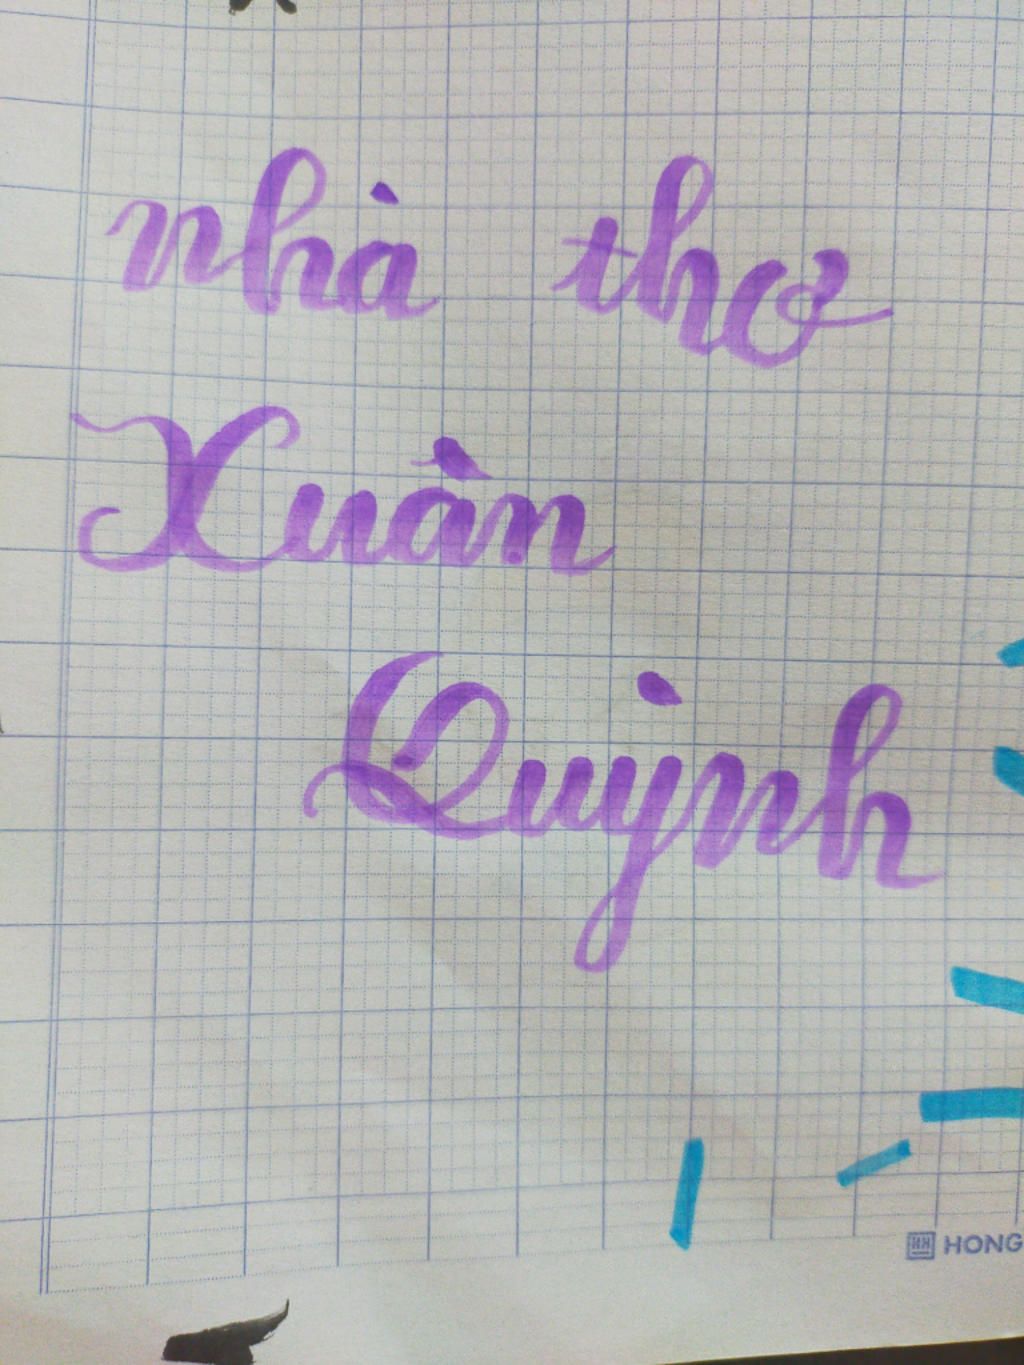 nhà thơ
Xuân
Quỳnh
HONG